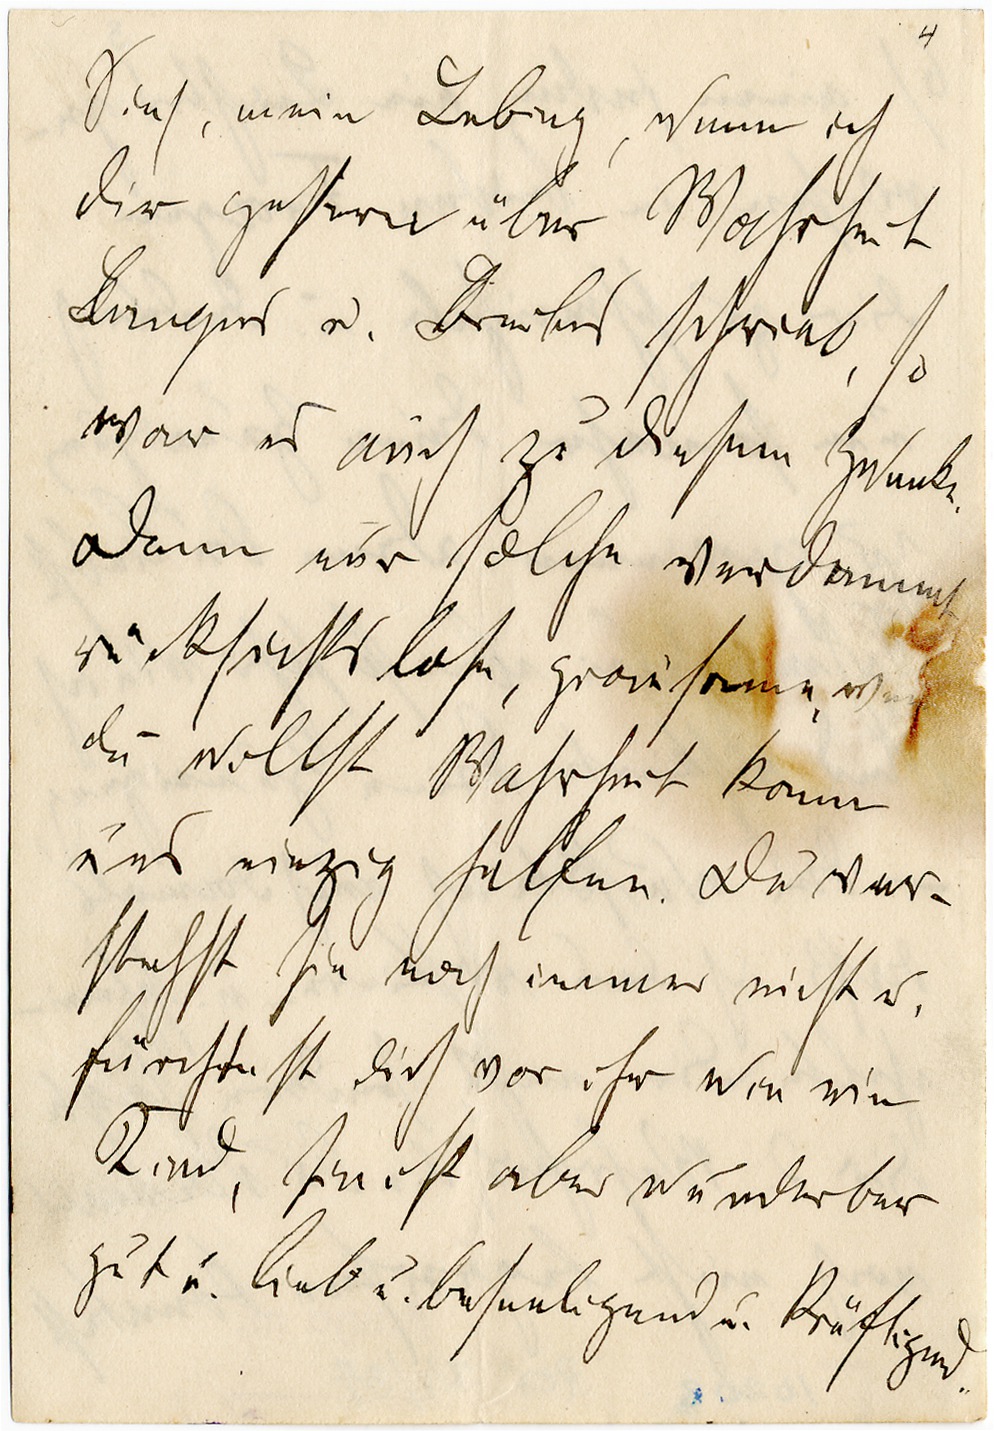 4
Sieh, mein Lebing, wenn ich
dir gestern über Wahrheit
Langes u. Breites schrieb, so
war es auch zu diesem Zwecke.
Denn nur solche verdammt
rücksichtslose, grausame, wie
du willst Wahrheit kann
uns einzig helfen. Du ver-
stehst sie noch immer nicht u.
fürchtest dich vor ihr wie ein
Kind, sie ist aber wunderbar
gut u. lieb u. beseeligend u. kräftigend.